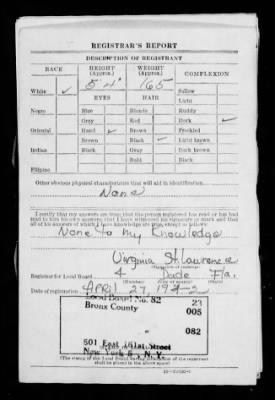 REGISTRAR'S REPORT
DESCRIPTION OF REGISTRANT
RACE HEIGHT (Approx.) WEIGHT (Approx.) COMPLEXION
5'4" 165
White ✓ Sallow
EYES HAIR Light
Negro Blue Blonde Ruddy
Gray Red Dark ✓
Oriental Hazel ✓ Brown Freckled
Brown Black ✓ Light brown
Indian Black Gray Dark brown
Bald Black
Filipino
Other obvious physical characteristics that will aid in identification
None
I certify that my answers are true; that the person registered has read or has had
read to him his own answers; that I have witnessed his signature or mark and that
all of his answers of which I have knowledge are true, except as follows:
None to My Knowledge
Virginia St. Lawrence
Registrar for Local Board 4 Dade Fla.
Date of registration APRIL 27, 1942
Local Board No. 82 23
Bronx County 005
082
501 East 161st Street
New York N. Y.
(The stamp of the Local Board having jurisdiction of the registrant
shall be placed in the above space)